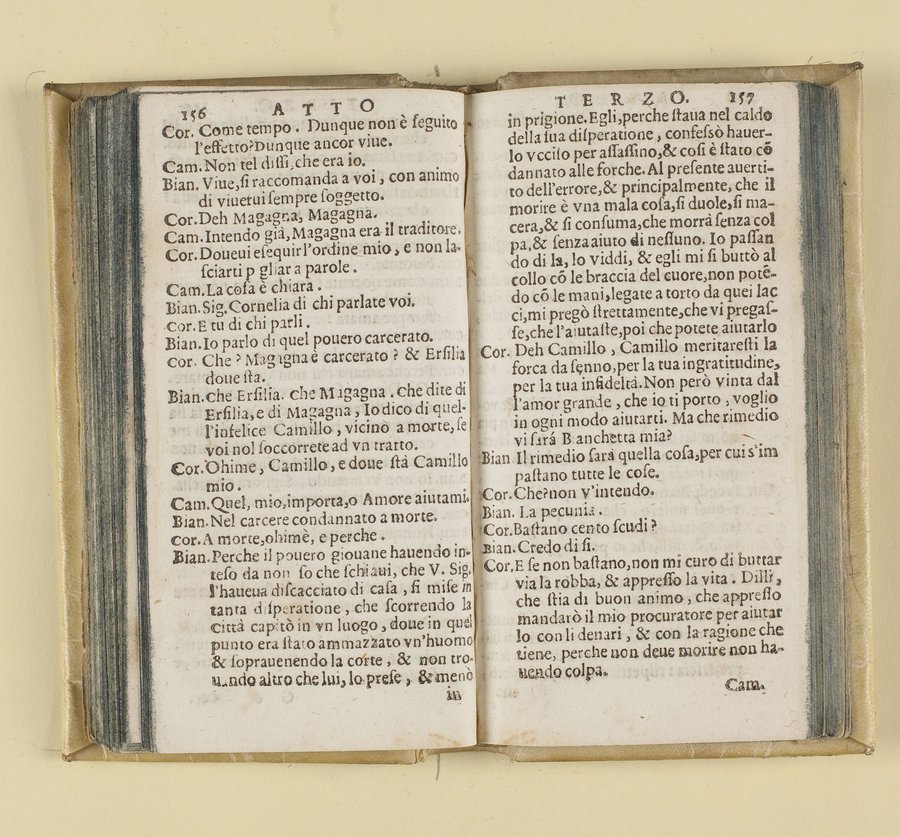 156 ATTO
Cor. Come tempo. Dunque non è ſeguito
l'effetto? Dunque ancor viue.
Cam. Non tel diſſi, che era io.
Bian. Viue, ſi raccomanda a voi, con animo
di viuerui ſempre ſoggetto.
Cor. Deh Magagna, Magagna.
Cam. Intendo già, Magagna era il traditore.
Cor. Doueui eſequir l'ordine mio, e non la-
ſciarti p gliar a parole.
Cam. La coſa è chiara.
Bian. Sig. Cornelia di chi parlate voi.
Cor. E tu di chi parli.
Bian. Io parlo di quel pouero carcerato.
Cor. Che? Magagna è carcerato? & Erſilia
doue ſta.
Bian. Che Erſilia. che Magagna. Che dite di
Erſilia, e di Magagna, Io dico di quel-
l'infelice Camillo, vicino a morte, ſe
voi nol ſoccorrete ad vn tratto.
Cor. Ohime, Camillo, e doue ſtà Camillo
mio.
Cam. Quel, mio, importa, o Amore aiutami.
Bian. Nel carcere condannato a morte.
Cor. A morte, ohimè, e perche.
Bian. Perche il pouero giouane hauendo in-
teſo da non ſo che ſchiaui, che V. Sig.
l'haueua diſcacciato di caſa, ſi miſe in
tanta diſperatione, che ſcorrendo la
Città capitò in vn luogo, doue in quel
punto era ſtato ammazzato vn'huomo
& ſoprauenendo la corte, & non tro-
uando altro che lui, lo preſe, & menò
in
TERZO. 157
in prigione. Egli, perche ſtaua nel caldo
della ſua diſperatione, confeſsò hauer-
lo vcciſo per aſſaſſino, & coſi è ſtato cō
dannato alle forche. Al preſente auerti-
to dell'errore, & principalmente, che il
morire è vna mala coſa, ſi duole, ſi ma-
cera, & ſi conſuma, che morrà ſenza col
pa, & ſenza aiuto di neſſuno. Io paſſan
do di la, lo viddi, & egli mi ſi buttò al
collo cō le braccia del cuore, non potē-
do cō le mani, legate a torto da quei lac
ci, mi pregò ſtrettamente, che vi pregaſ-
ſe, che l'aiutaſte, poi che potete aiutarlo
Cor. Deh Camillo, Camillo meritareſti la
forca da ſenno, per la tua ingratitudine,
per la tua infideltà. Non però vinta dal
l'amor grande, che io ti porto, voglio
in ogni modo aiutarti. Ma che rimedio
vi ſarà B anchetta mia?
Bian. Il rimedio ſarà quella coſa, per cui s'im
paſtano tutte le coſe.
Cor. Che? non v'intendo.
Bian. La pecunia.
Cor. Baſtano cento ſcudi?
Bian. Credo di ſi.
Cor. E ſe non baſtano, non mi curo di buttar
via la robba, & appreſſo la vita. Dilli,
che ſtia di buon animo, che appreſſo
mandarò il mio procuratore per aiutar
lo con li denari, & con la ragione che
tiene, perche non deue morire non ha-
uendo colpa.
Cam.